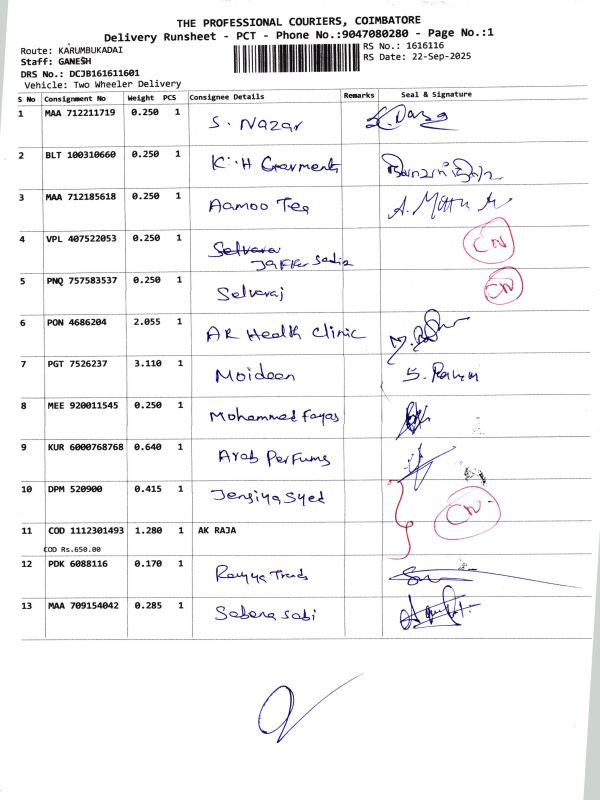 THE PROFESSIONAL COURIERS, COIMBATORE
Delivery Runsheet - PCT - Phone No.:9047080280 - Page No.:1
Route: KARUMBUKADAI
RS No.: 1616116
Staff: GANESH
RS Date: 22-Sep-2025
DRS No.: DCJB161611601
Vehicle: Two Wheeler Delivery
S No Consignment No Weight PCS Consignee Details Remarks Seal & Signature
1 MAA 712211719 0.250 1 S. Nazar
2 BLT 100310660 0.250 1 K.H Garments
3 MAA 712185618 0.250 1 Aamoo Tea
4 VPL 407522053 0.250 1 Selvara CN
Jakker Sadiq
5 PNQ 757583537 0.250 1 Selvaraj CN
6 PON 4686204 2.055 1 AR Health Clinic
7 PGT 7526237 3.110 1 Moideen
8 MEE 920011545 0.250 1 Mohammed Fayas
9 KUR 6000768768 0.640 1 Arab Perfums
10 DPM 520900 0.415 1 Jensiya Syed CN
11 COD 1112301493 1.280 1 AK RAJA
COD Rs.650.00
12 PDK 6088116 0.170 1 Trends
13 MAA 709154042 0.285 1 Sabena Sabi